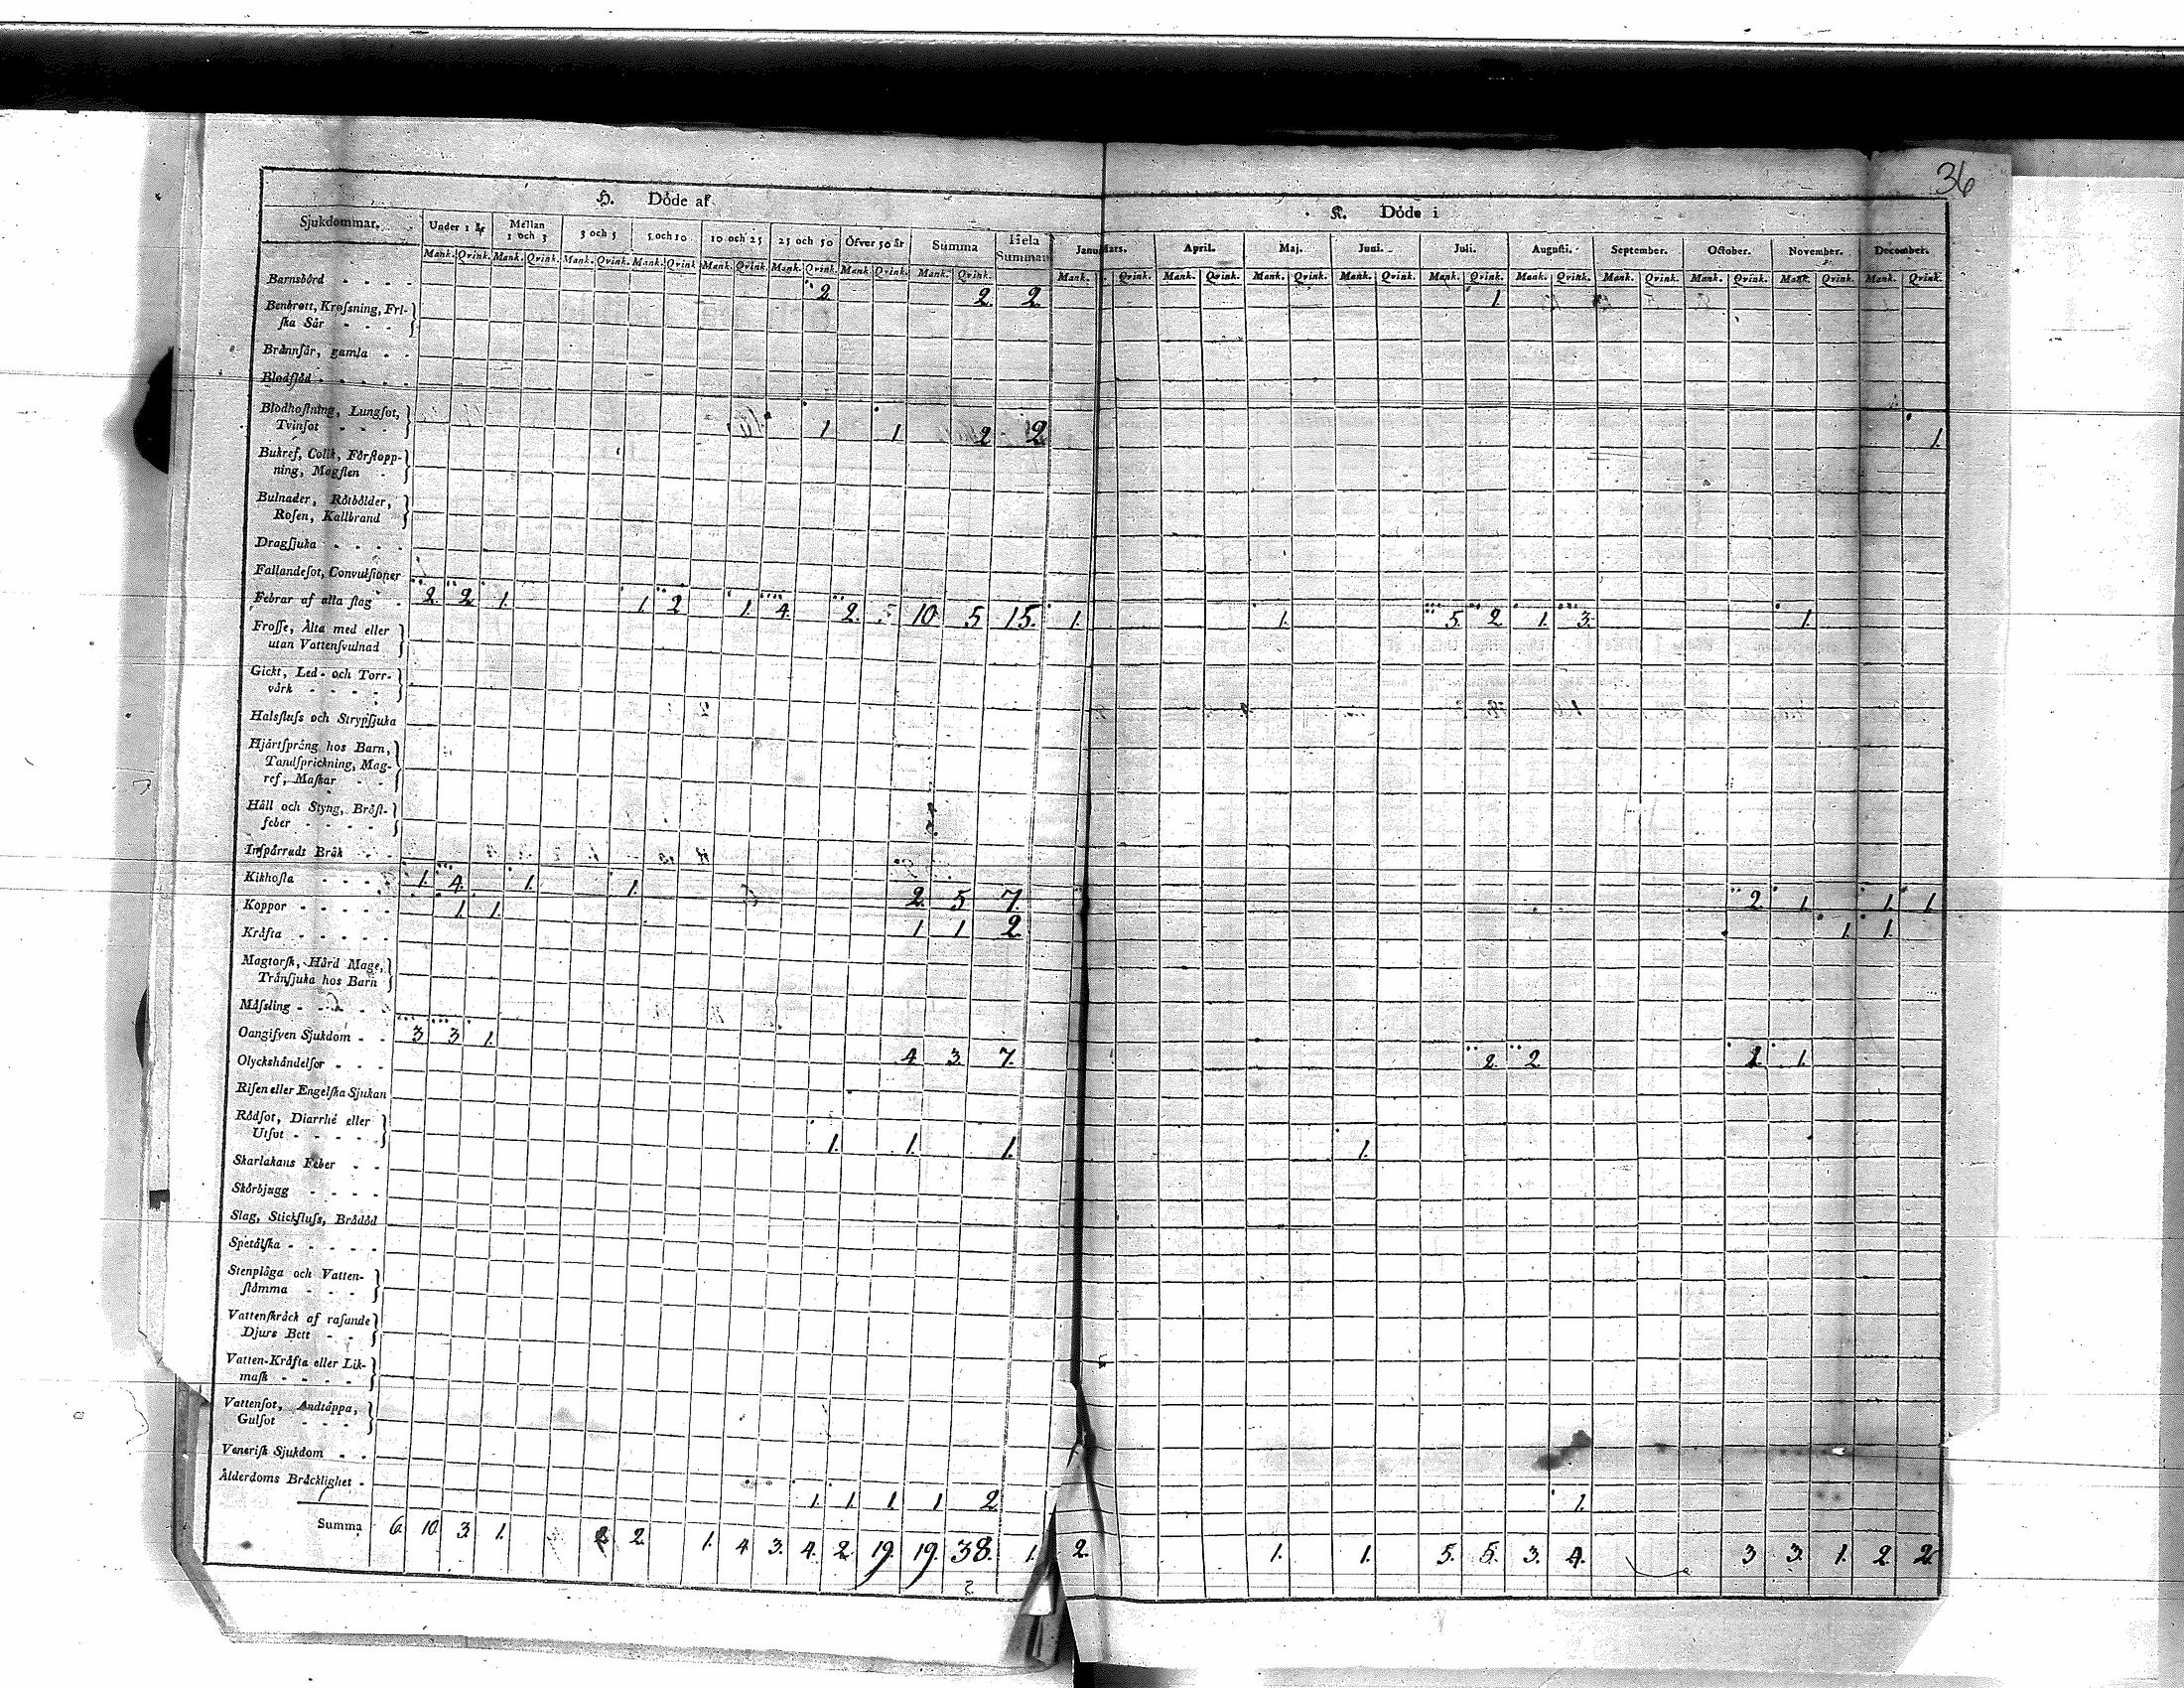 36
H. Döde af
K. Döde i
Sjukdommar. Under 1 år Mellan 1 och 3 3 och 5 5 och 10 10 och 25 25 och 50 Öfver 50 år Summa Hela Summan Janu Mars. April. Maj. Juni. Juli. Augusti. September. October. November. December.
Mank. Qvink. Mank. Qvink. Mank. Qvink. Mank. Qvink. Mank. Qvink. Mank. Qvink. Mank. Qvink. Mank. Qvink. Mank. Qvink. Mank. Qvink. Mank. Qvink. Mank. Qvink. Mank. Qvink. Mank. Qvink. Mank. Qvink. Mank. Qvink. Mank. Qvink. Mank. Qvink.
Barnsbörd - - - - 2 2. 2. 1.
Benbrott, Krosſning, Friſka
Sår - - -
Brännſår, gamla - -
Blodflöd - - - - -
Blodhoſtning, Lungſot,
Tvinſot - - - 1 1 2 2 1.
Bukref, Colik, Förſtoppning,
Magſten -
Bulnader, Rötbölder,
Roſen, Kallbrand
Dragſjuka - - - -
Fallandeſot, Convulſioner
Febrar af alla ſlag - 2. 2. 1. 1. 2 1. 4. 2. 10 5 15. 1. 1. 5. 2 1. 3. 1.
Froſſe, Älta med eller
utan Vattenſvulnad
Gickt, Led- och Torrvärk
- - - -
Halsfluſs och Strypſjuka
Hjärtſpräng hos Barn,
Tandſprickning, Magref,
Maſkar - -
Håll och Styng, Bröſtfeber
- - - -
Inſpärradt Bråk - -
Kikhoſta - - - - 1. 4. 1. 1. 2. 5 7. 2. 1. 1. 1
Koppor - - - - - 1. 1. 1 1 2. 1. 1.
Kräfta - - - - -
Magtorſk, Hård Mage,
Tränſjuka hos Barn
Måſsling - - - - -
Oangifven Sjukdom - - 3 3 1. 4. 3. 7. 2. 2. 1.
Olyckshändelſer - - -
Riſen eller Engelſka Sjukan
Rödſot, Diarrhé eller
Utſot - - - - - 1. 1. 1. 1.
Skarlakans Feber - -
Skörbjugg - - - -
Slag, Stickfluſs, Brådöd
Spetälſka - - - - -
Stenplåga och Vattenſtämma
- - -
Vattenſkräck af raſande
Djurs Bett - -
Vatten-Kräfta eller Likmaſk
- - - -
Vattenſot, Andtäppa,
Gulſot - - -
Veneriſk Sjukdom - -
Ålderdoms Bräcklighet - 1. 1. 1 1 2 1.
Summa 6 10 3. 1. 2 2. 1. 4 3. 4. 2. 19. 19. 38. 1. 2. 1. 1. 5. 5. 3. 4. 3 3. 1. 2 2